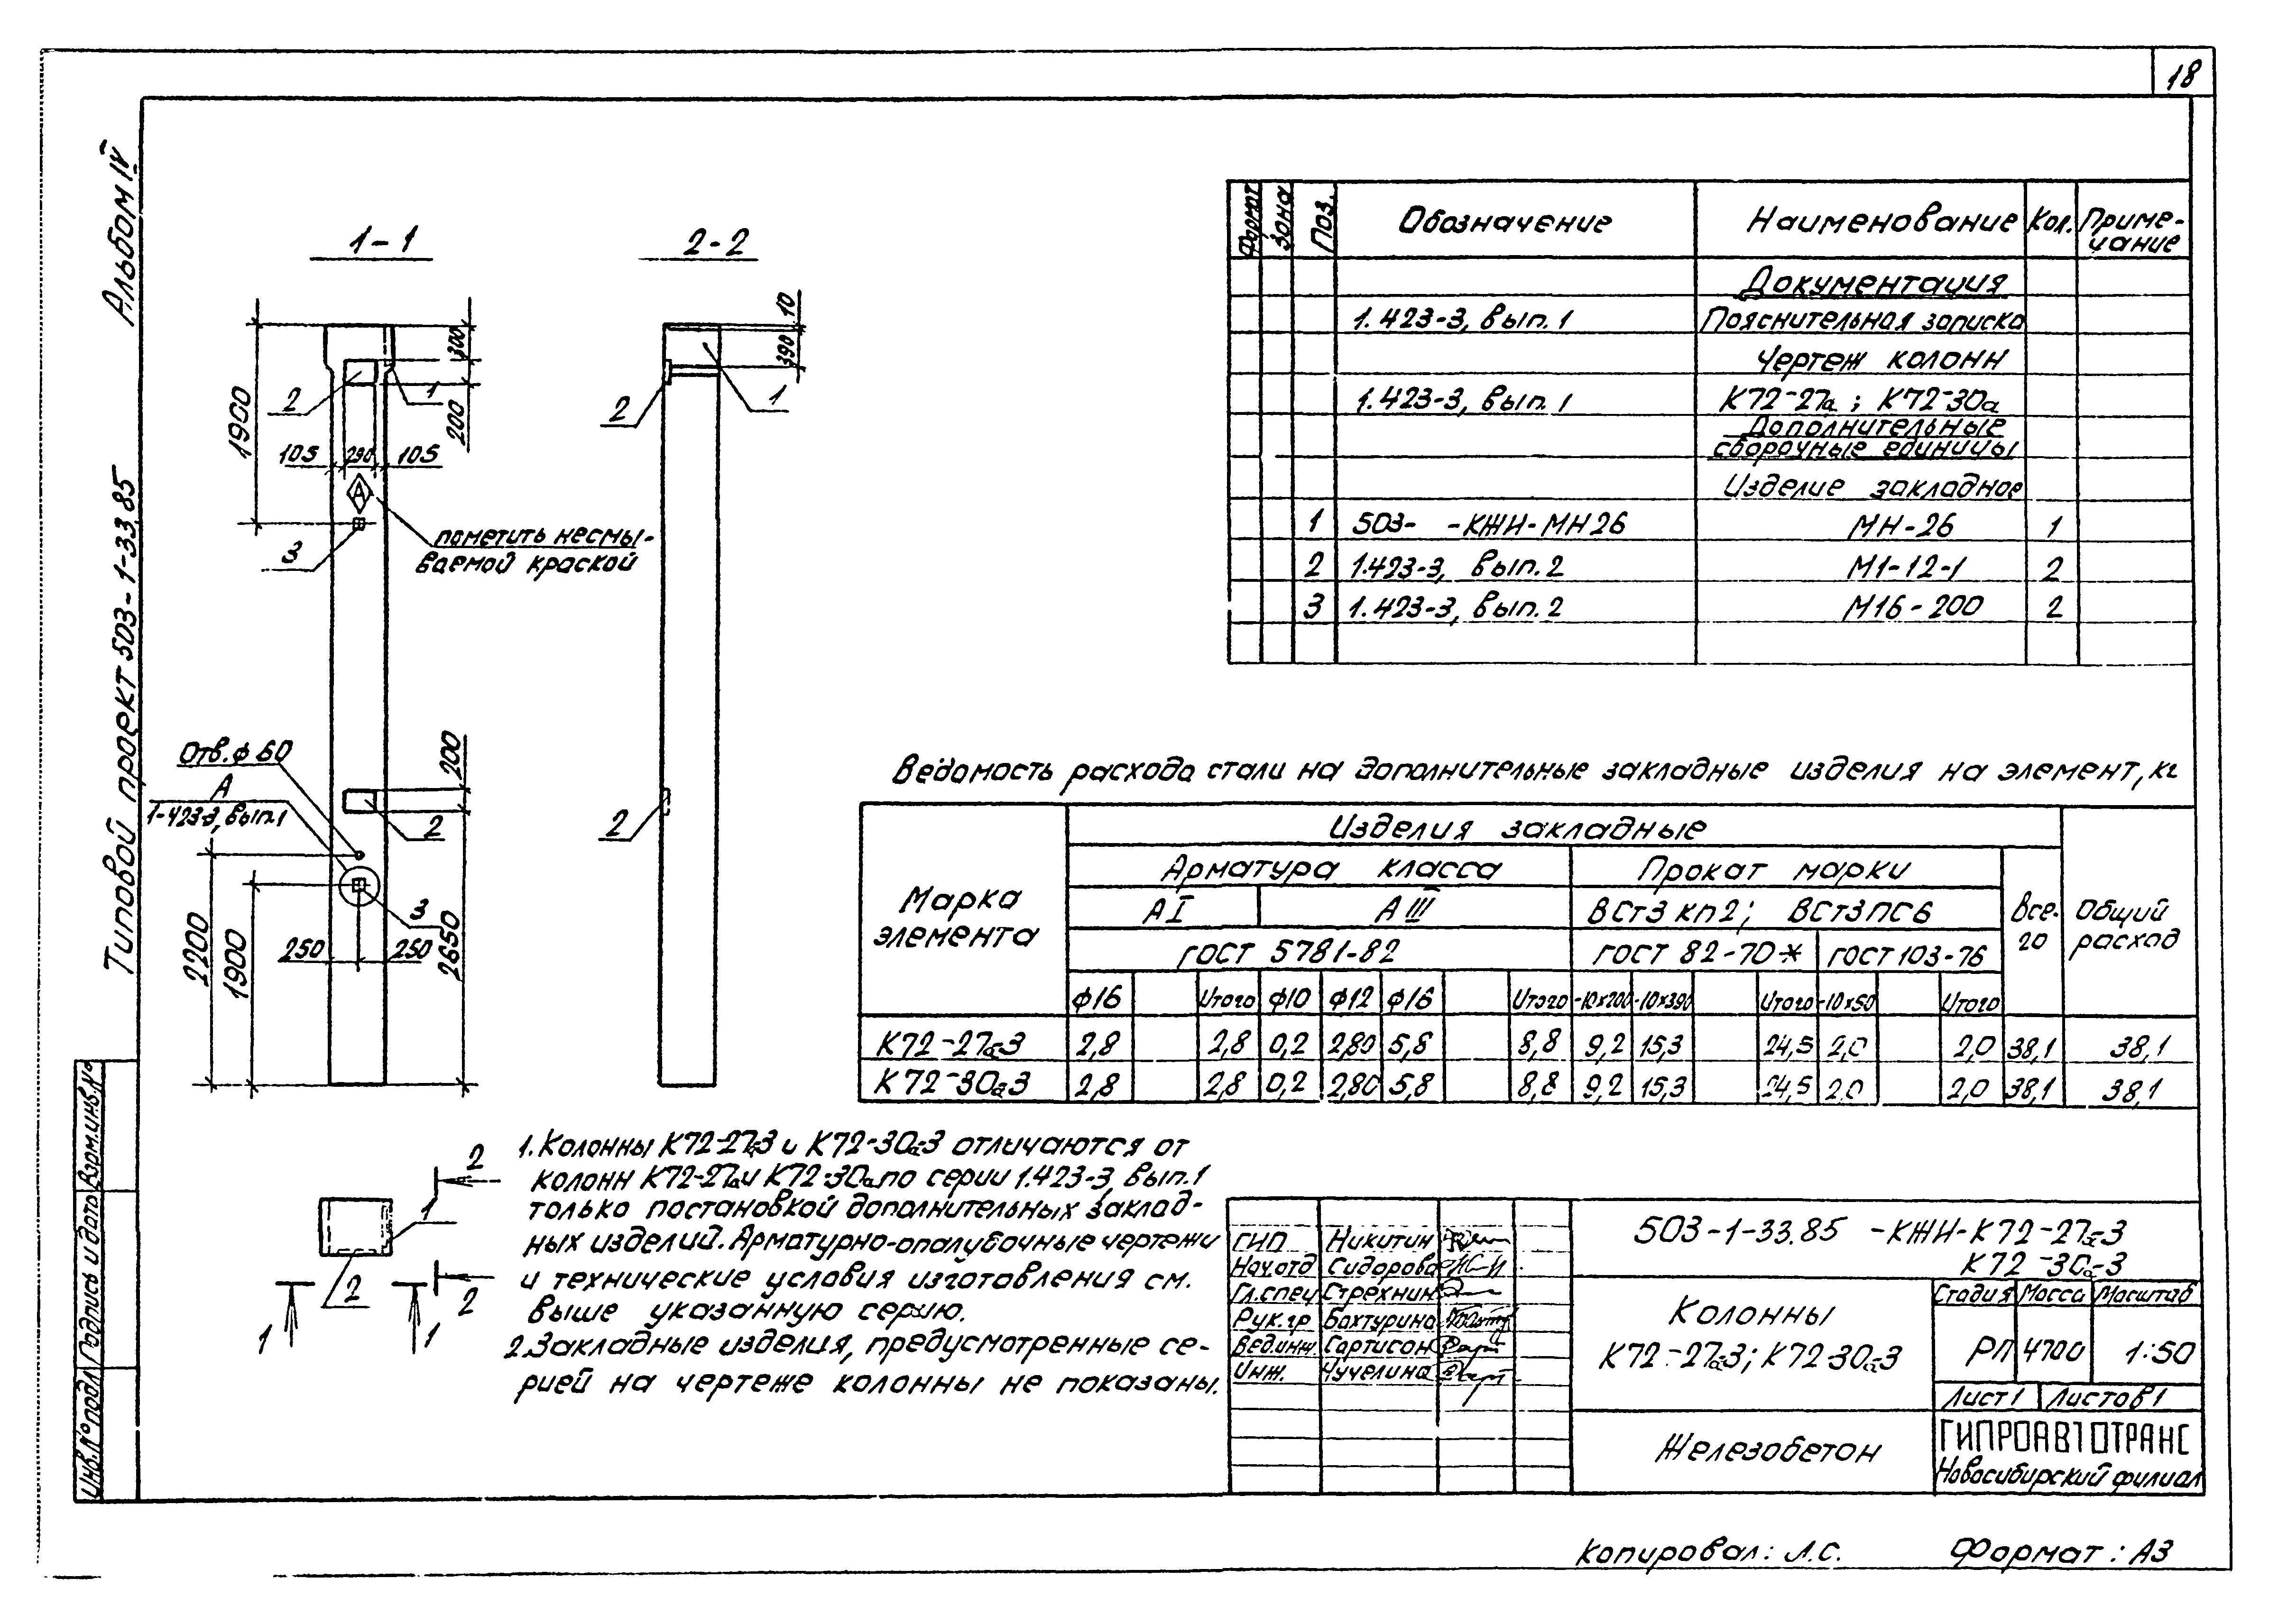 18
Альбом IV
Типовой проект 503-1-33.85
1-1
2-2
1900
300
200
2
1
105
290
105
А
3
пометить несмы-
ваемой краской
10
390
2
1
Отв. ф 60
А
1-423-3, вып.1
200
2
2
3
250
250
2200
1900
2650
2
1
2
2
1
1
Формат
Зона
Поз.
Обозначение
Наименование
Кол.
Приме-
чание
Документация
1.423-3, вып. 1
Пояснительная записка
Чертеж колонн
1.423-3, вып. 1
К72-27а ; К72-30а
Дополнительные
сборочные единицы
Изделие закладное
1 503- -КЖИ-МН26 МН-26 1
2 1.423-3, вып. 2 М1-12-1 2
3 1.423-3, вып. 2 М16-200 2
Ведомость расхода стали на дополнительные закладные изделия на элемент, кг
Марка
элемента
Изделия закладные
Арматура класса
Прокат марки
Все-
го
Общий
расход
А I
А III
ВСт3 кп2; ВСт3ПС6
ГОСТ 5781-82
ГОСТ 82-70*
ГОСТ 103-76
ф16 Итого ф10 ф12 ф16 Итого -10х200 -10х390 Итого -10х50 Итого
К72-27а-3 2,8 2,8 0,2 2,80 5,8 8,8 9,2 15,3 24,5 2,0 2,0 38,1 38,1
К72-30а-3 2,8 2,8 0,2 2,80 5,8 8,8 9,2 15,3 24,5 2,0 2,0 38,1 38,1
1. Колонны К72-27а-3 и К72-30а-3 отличаются от
колонн К72-27а и К72-30а по серии 1.423-3, вып. 1
только постановкой дополнительных заклад-
ных изделий. Арматурно-опалубочные чертежи
и технические условия изготовления см.
выше указанную серию.
2. Закладные изделия, предусмотренные се-
рией на чертеже колонны не показаны.
Инв.№ подл.
Подпись и дата
Взам.инв.№
ГИП Никитин
Нач.отд Сидоров
Гл.спец Стрехнин
Рук.гр Бахтурина
Вед.инж. Сартисон
Инж. Чучелина
503-1-33.85 -КЖИ-К72-27а-3
К72-30а-3
Колонны
К72-27а-3; К72-30а-3
Стадия Масса Масштаб
РП 4700 1:50
Лист 1 Листов 1
Железобетон
ГИПРОАВТОТРАНС
Новосибирский филиал
Копировал: Л.С.
Формат: А3